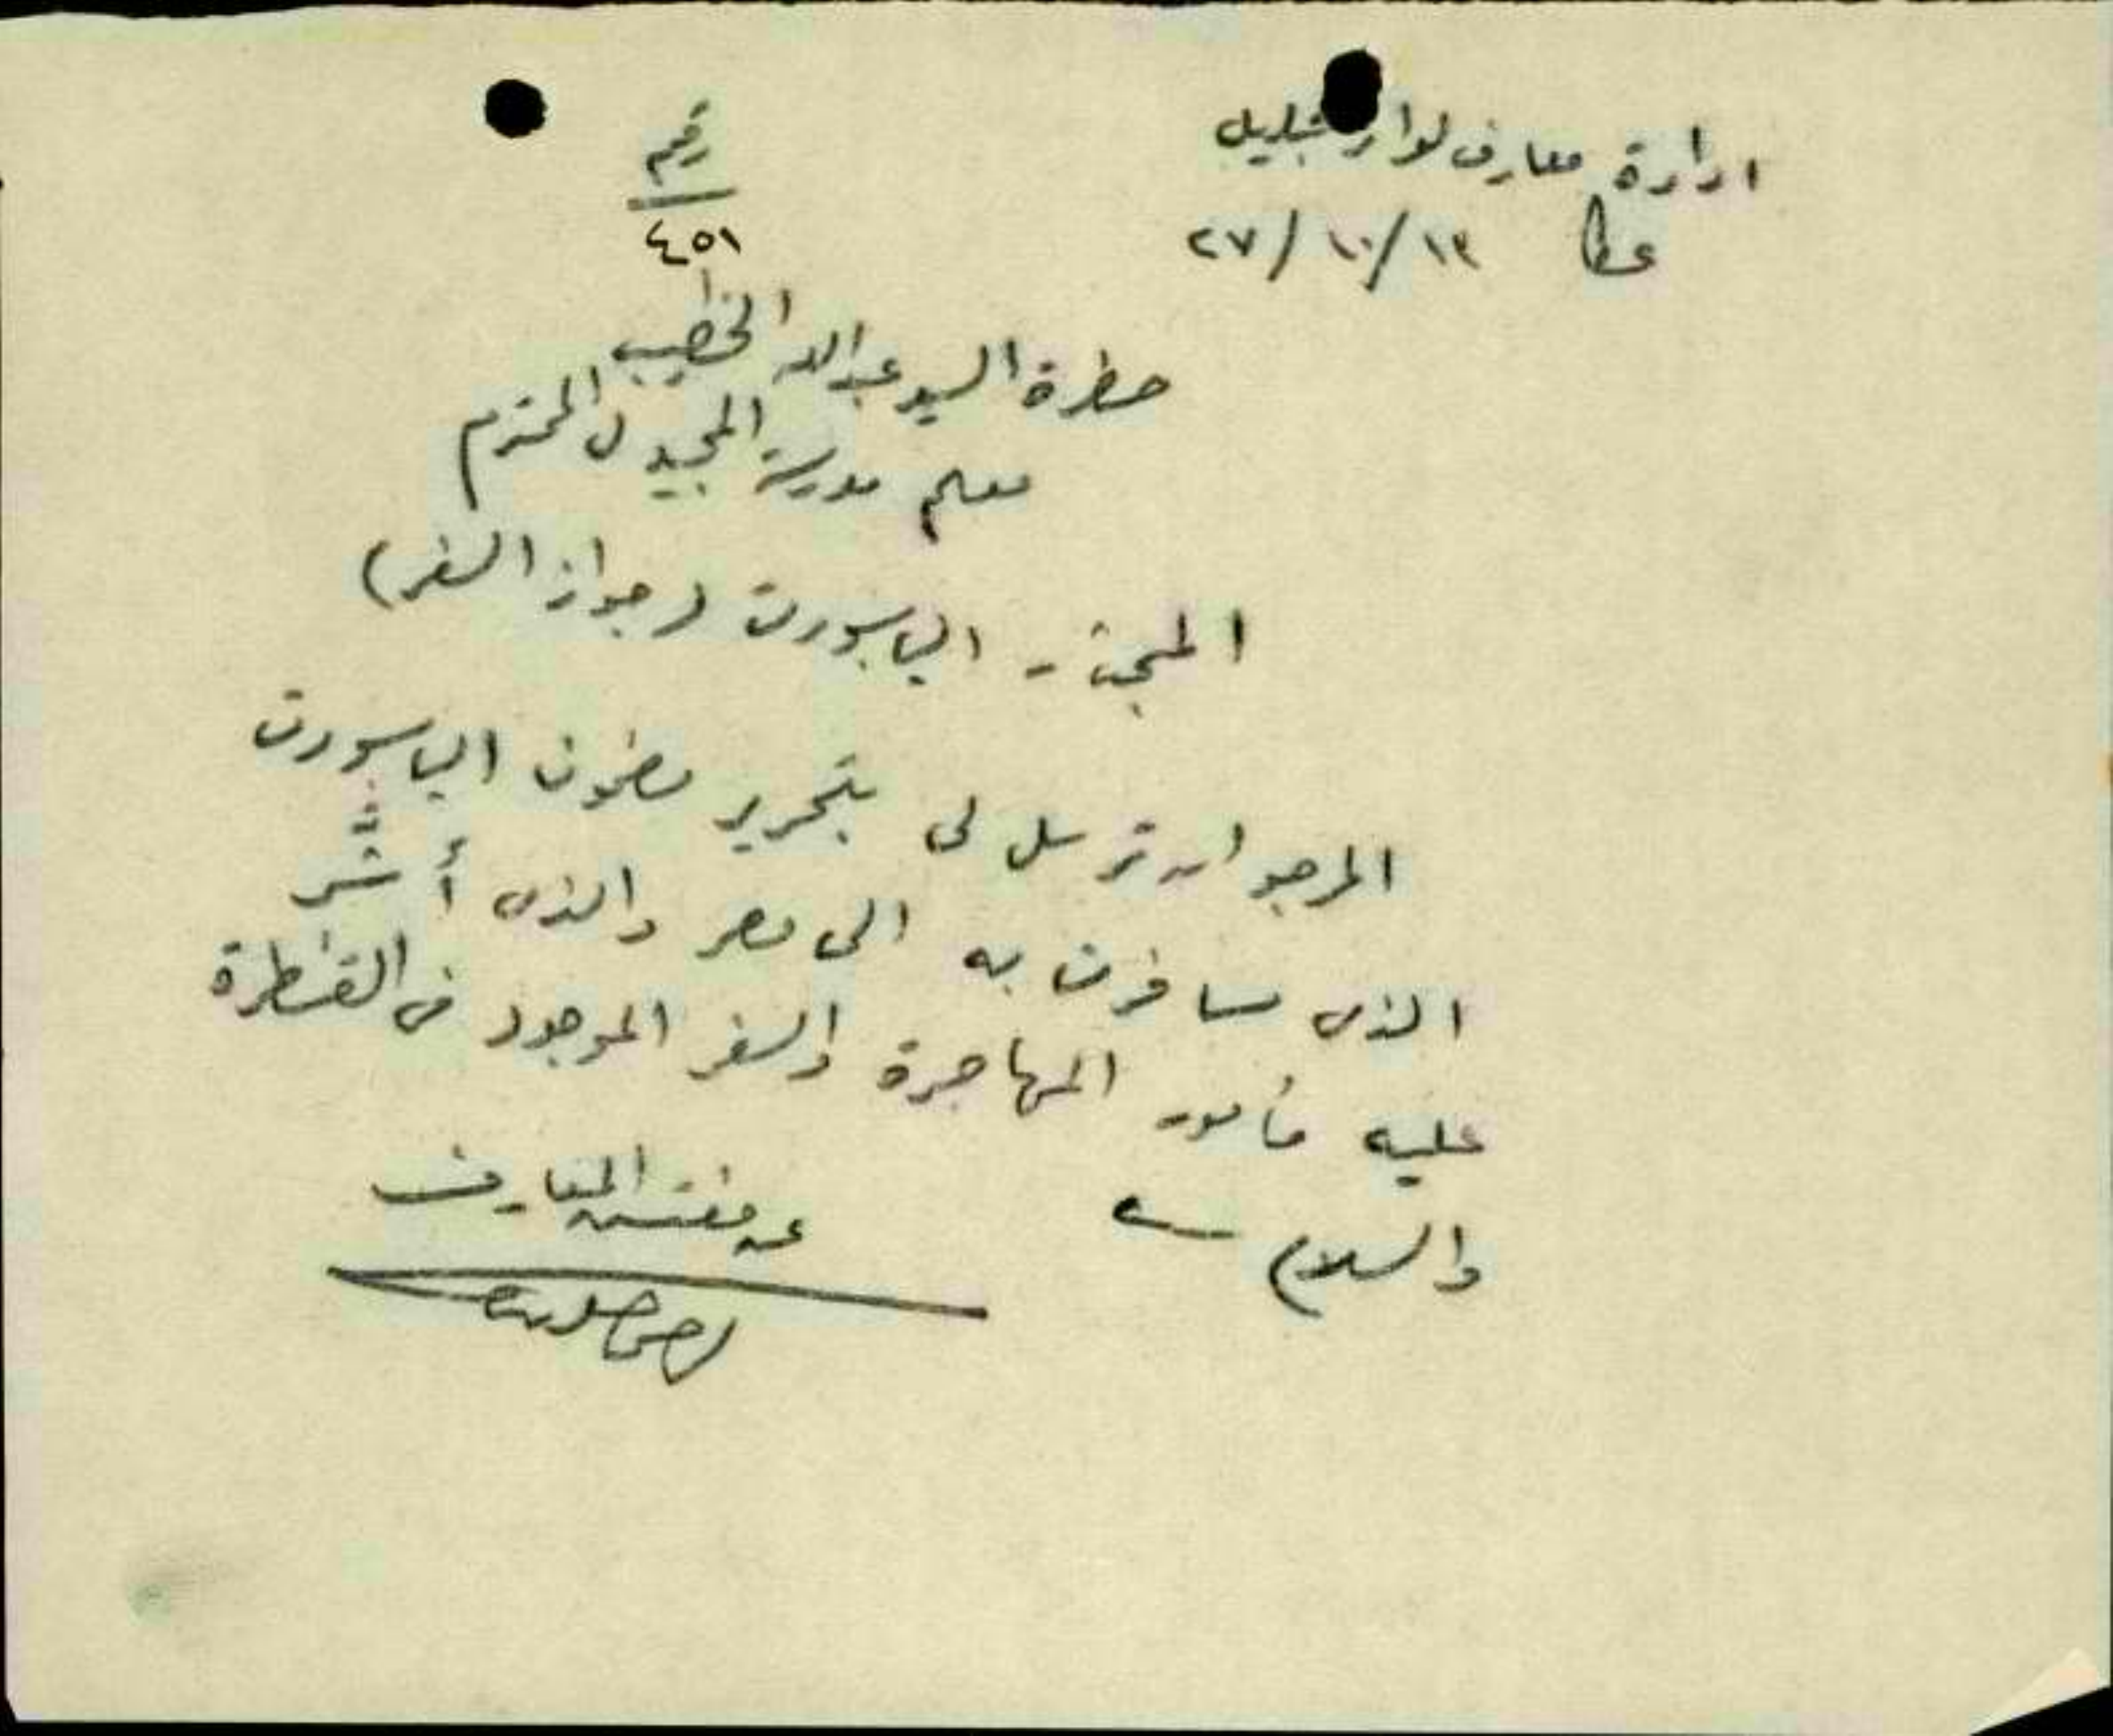 ادارة معارف لواء الجليل
عكا ١٣/١٠/٢٧
رقم
٤٥١
حضرة السيد عبدالله الخطيب
معلم مدرسة المجيدل المحترم
المبحث - الپاسپورت (جواز السفر)
المرجو ان ترسل لي بتحرير مضمون الپاسپورت
الذي سافرت به الى مصر والذي أشّر
عليه مأمور المهاجرة والسفر الموجود في القنطرة
والسلام
عن مفتش المعارف